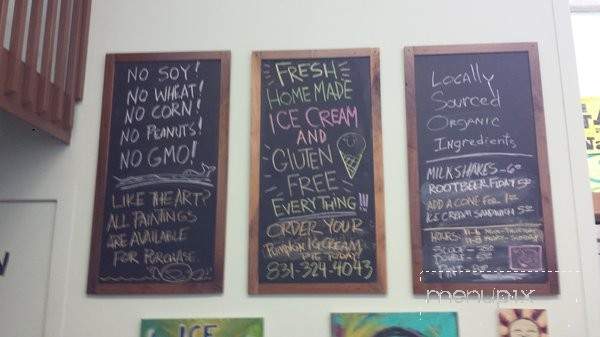 NO SOY!
NO WHEAT!
NO CORN!
NO PEANUTS!
NO GMO!
LIKE THE ART?
ALL PAINTINGS
ARE AVAILABLE
FOR PURCHASE.
FRESH
HOMEMADE
ICE CREAM
AND
GLUTEN
FREE
EVERYTHING!!!
ORDER YOUR
Pumpkin ICE CREAM
PIE TODAY!
831-324-4043
Locally
Sourced
Organic
Ingredients
MILKSHAKES - 6
ROOTBEER FLOAT
ADD A CONE FOR
ICE CREAM SANDWICH
HOURS:
DOUBLE
menupix
ICE